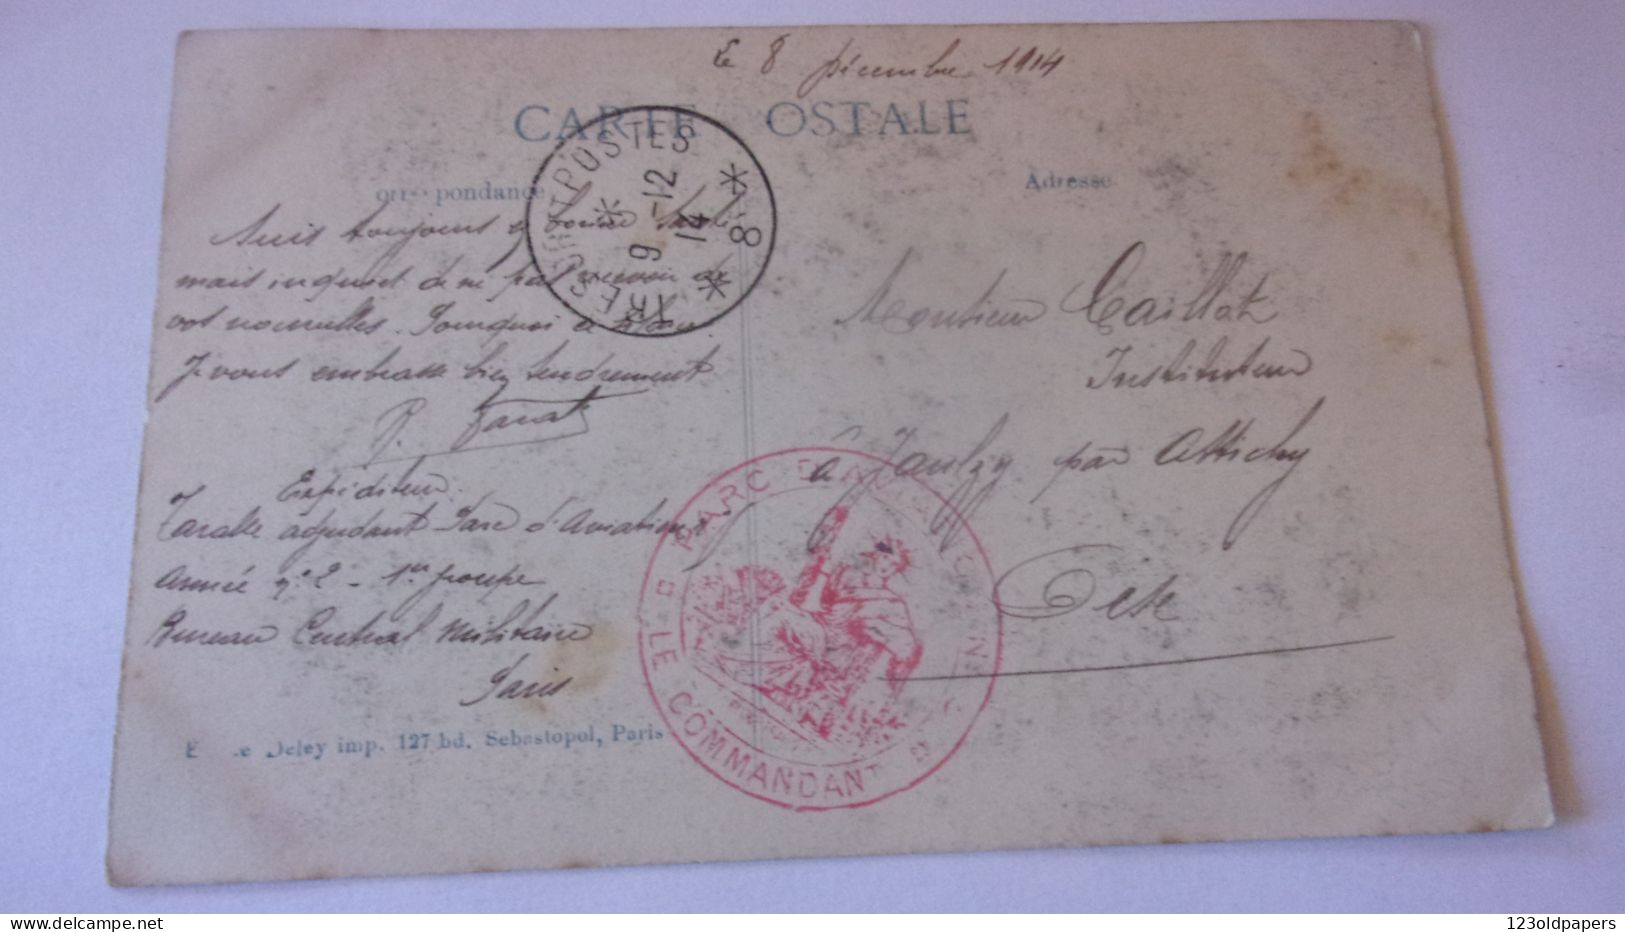 Le 8 Décembre 1914
CARTE POSTALE
Correspondance
Adresse
TRESOR ET POSTES * 8 *
9 -12
14
Suis toujours en bonne santé
mais inquiet de ne pas recevoir de
vos nouvelles. Pourquoi
Je vous embrasse bien tendrement
Expéditeur
adjudant Parc d'Aviation
Armée n° 2 - 1er groupe
Bureau Central Militaire
Paris
Monsieur Caillot
Instituteur
à Jaulzy par Attichy
Oise
PARC D'AVIATION N°
LE COMMANDANT
Deley imp. 127 bd. Sebastopol, Paris
123oldpapers